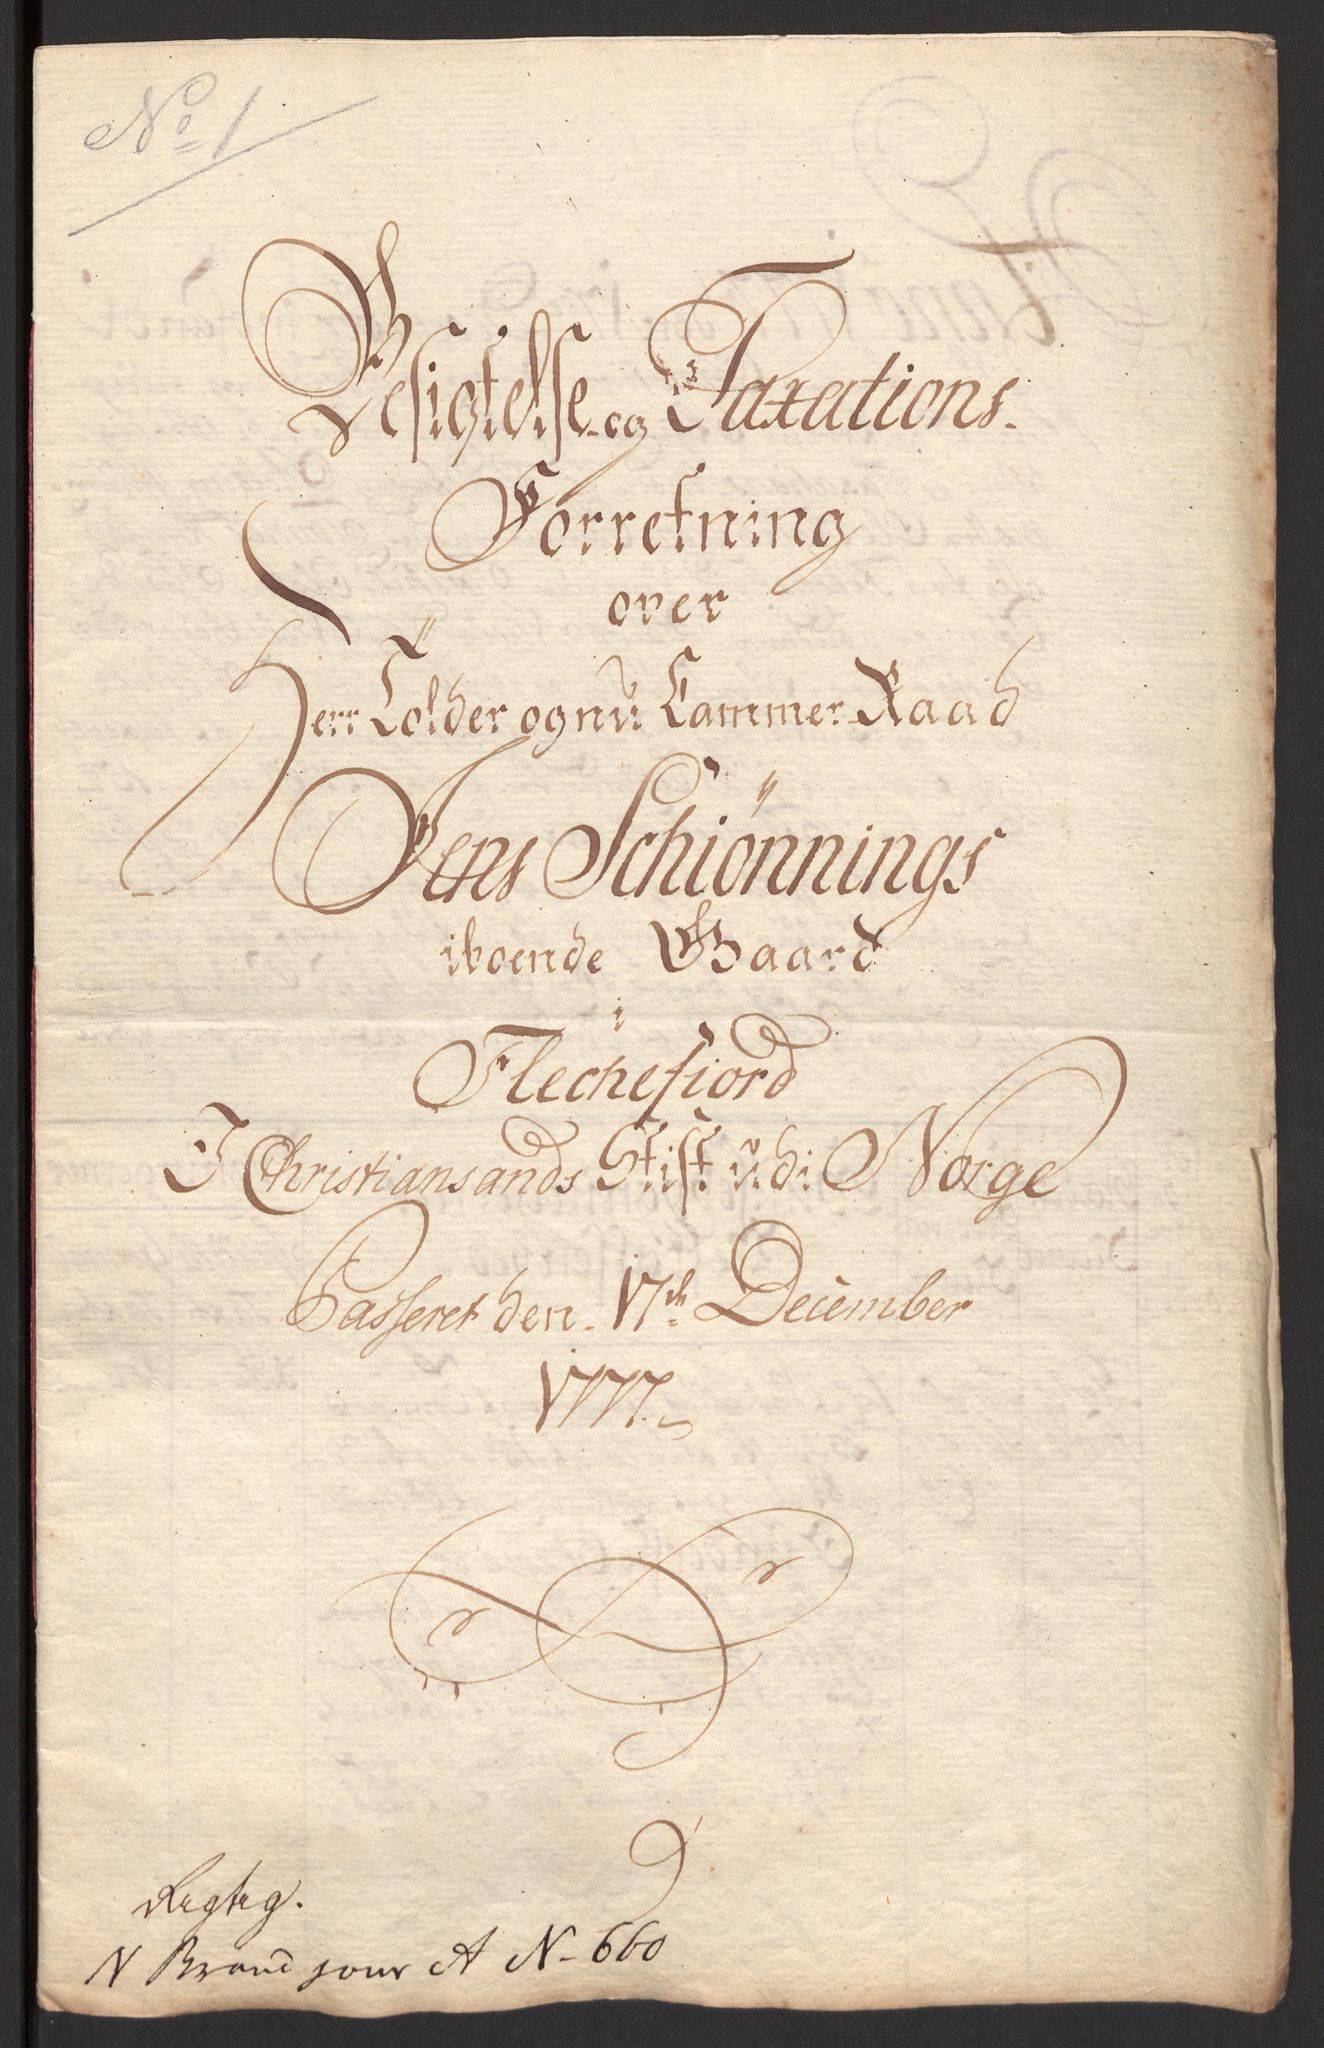 No 1
Besigtelse og Taxations-
Forretning
over
Herr Tolder og nu Cammer-Raad
Jens Schiønnings
iboende Gaard
i
Flechefiord
I Christiansands Stift udi Norge
Passeret den 17de December
1777.
Rigtig.
N Brand jour A N- 660